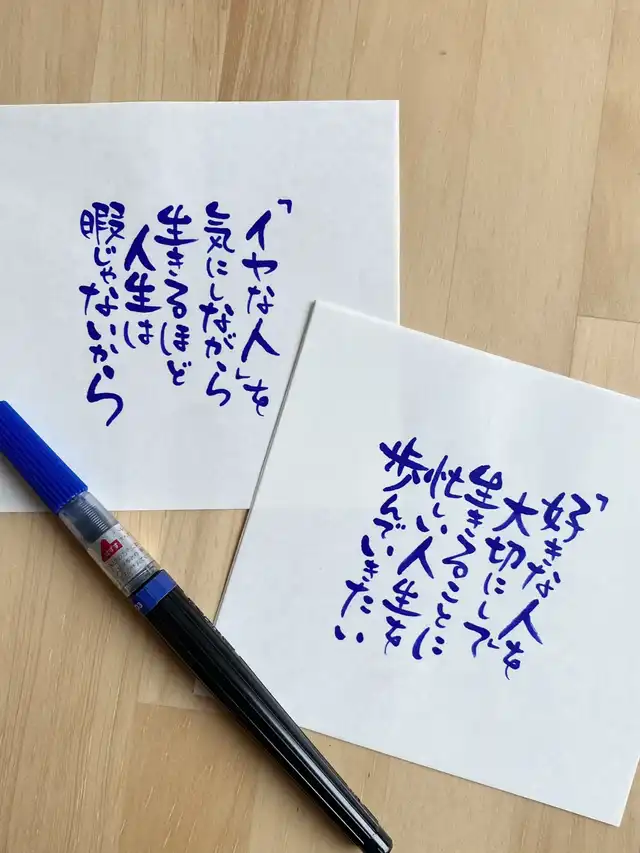 「イヤな人」を
気にしながら
生きるほど
人生は
暇じゃないから
「好きな人を
大切にして
生きることに
忙しい人生を
歩んでいきたい